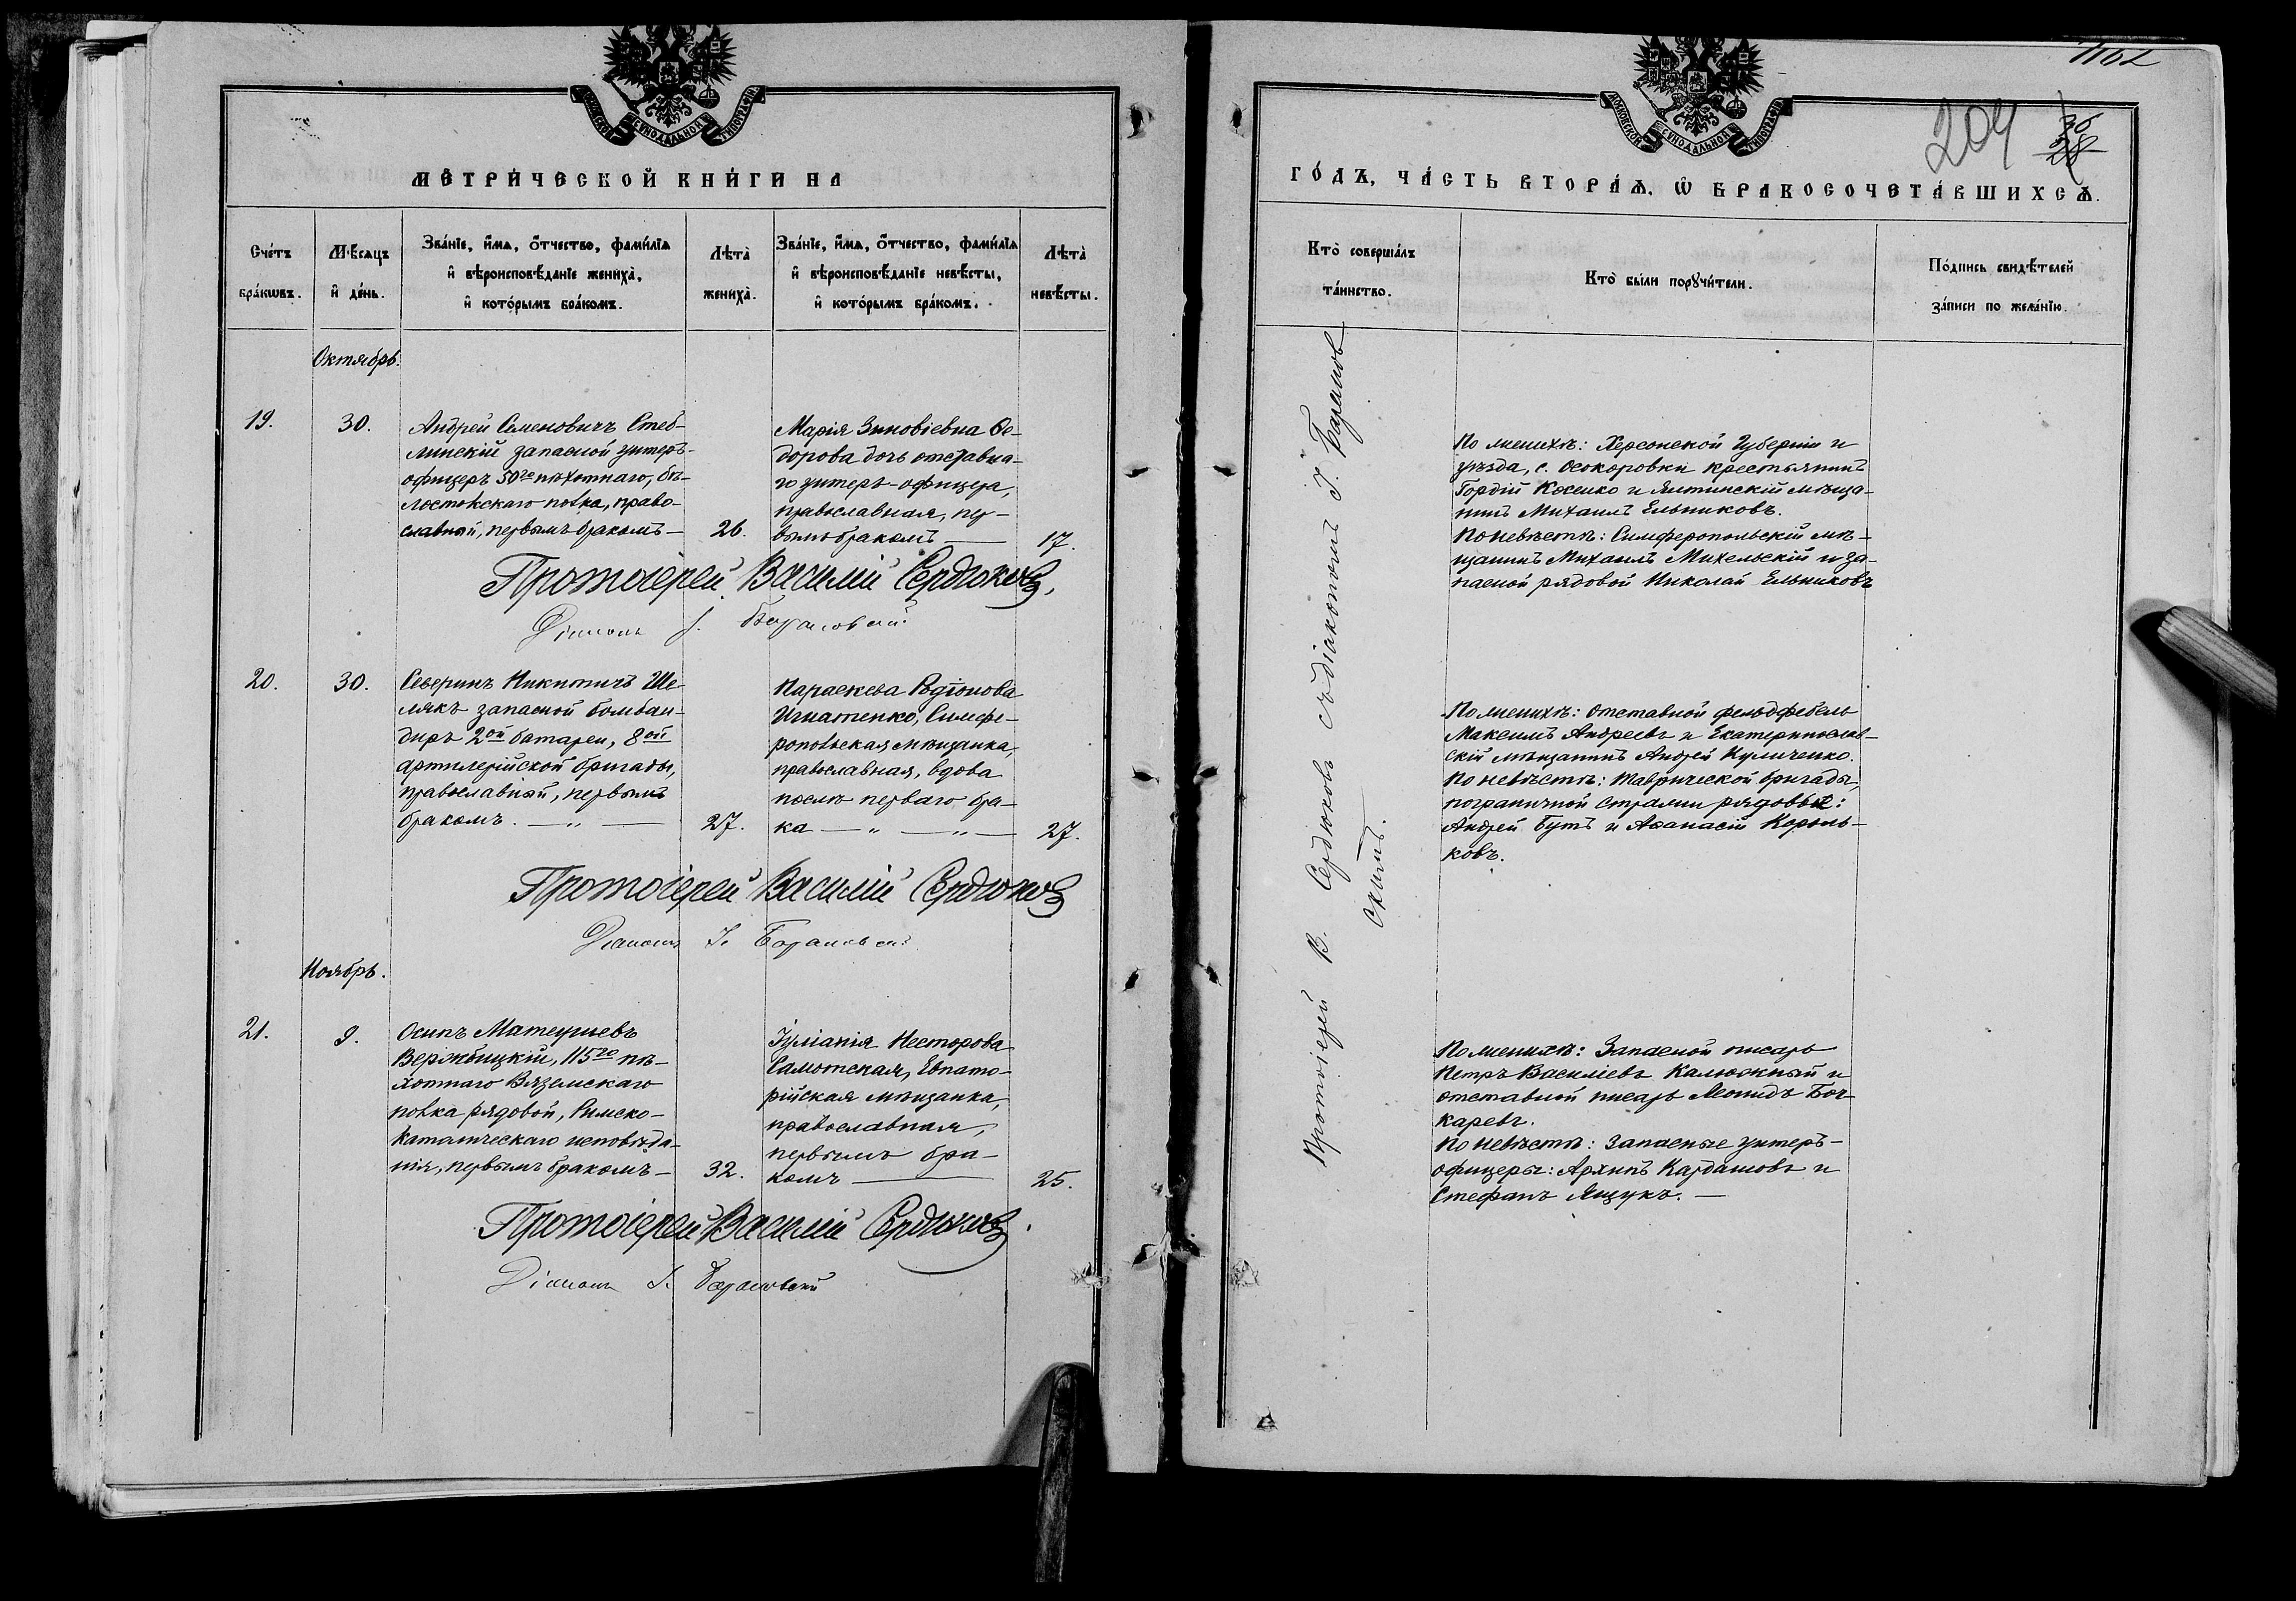 МОСКОВСКОЙ СѴНОДАЛЬНОЙ ТИПОГРАФІИ
МЕТРИ́ЧЕСКОЙ КНИ́ГИ НА
Сче́тъ бра́кѡвъ.
Мѣ́сѧцъ и҆ де́нь.
Зва́нїе, и҆́мѧ, ѻ҆́тчество, фами́лїѧ
и҆ вѣроисповѣ́данїе жениха̀,
и҆ кото́рымъ бра́комъ.
Лѣта̀ жениха̀.
Зва́нїе, и҆́мѧ, ѻ҆́тчество, фами́лїѧ
и҆ вѣроисповѣ́данїе невѣ́сты,
и҆ кото́рымъ бра́комъ.
Лѣта̀ невѣ́сты.
Октябрь.
19.
30.
Андрей Семеновичъ Стеб-
линскій запасной унтеръ-
офицеръ 50го пѣхотнаго, бѣ-
лостокскаго полка, право-
славный, первымъ бракомъ —
26.
Марія Зиновіевна Ѳе-
дорова дочь отставна-
го унтеръ-офицера,
православная, пер-
вымъ бракомъ —
17.
Протоіерей Василій Сердюковъ.
Діаконъ І. Барановскій
20.
30.
Северинъ Никитичъ Ше-
лякъ запасной бомбан-
диръ 2ой батареи, 8ой
артилерійской бригады,
православный, первымъ
бракомъ. — „ —
27.
Параскева Родіонова
Игнатенко, Симфе-
ропольская мѣщанка,
православная, вдова
послѣ перваго бра-
ка — „ — „ —
27.
Протоіерей Василій Сердюковъ
Діаконъ І. Барановскій
Ноябрь.
21.
9.
Осипъ Матеушевъ
Вержбицкій, 115го пѣ-
хотнаго Вяземскаго
полка рядовой, Римско-
католическаго исповѣда-
нія, первымъ бракомъ —
32.
Іуліанія Несторова
Самотская, Евпато-
рійская мѣщанка,
православная,
первымъ бра-
комъ —
25.
Протоіерей Василій Сердюковъ.
Діаконъ І. Барановскій
МОСКОВСКОЙ СѴНОДАЛЬНОЙ ТИПОГРАФІИ
204
ГО́ДЪ, ЧА́СТЬ ВТОРА́Ѧ, Ѽ БРАКОСОЧЕТА́ВШИХСѦ.
Кто̀ соверша́лъ
та́инство.
Кто̀ бы́ли порꙋчи́тели.
По́дпись свидѣ́телей
за́писи по жела́нїю.
Протоіерей В. Сердюковъ съ діакономъ І. Баранов
скимъ.
По женихѣ: Херсонской Губерніи и
уѣзда, с. Осокоровки крестьянинъ
Гордій Косенко и Ялтинскій мѣща-
нинъ Михаилъ Ельниковъ.
По невѣстѣ: Симферопольскій мѣ-
щанинъ Михаилъ Михельскій и за-
пасной рядовой Николай Ельниковъ
По женихѣ: отставной фельдфебель
Максимъ Андреевъ и Екатеринослав-
скій мѣщанинъ Андрей Куличенко.
По невѣстѣ: Таврической бригады,
пограничной стражи рядовые:
Андрей Бутъ и Аѳанасій Король-
ковъ.
По женихѣ: Запасной писарь
Петръ Василіевъ Калюжный и
отставной писарь Леонидъ Боч-
каревъ.
По невѣстѣ: запасные унтеръ-
офицеры: Архипъ Кардашовъ и
Стефанъ Ящукъ. —